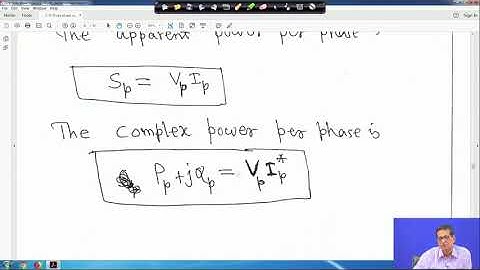 Home Tools
Sign In
The apparent power per phase is
S_p = V_p I_p
The complex power per phase is
P_p + jQ_p = V_p I_p^*